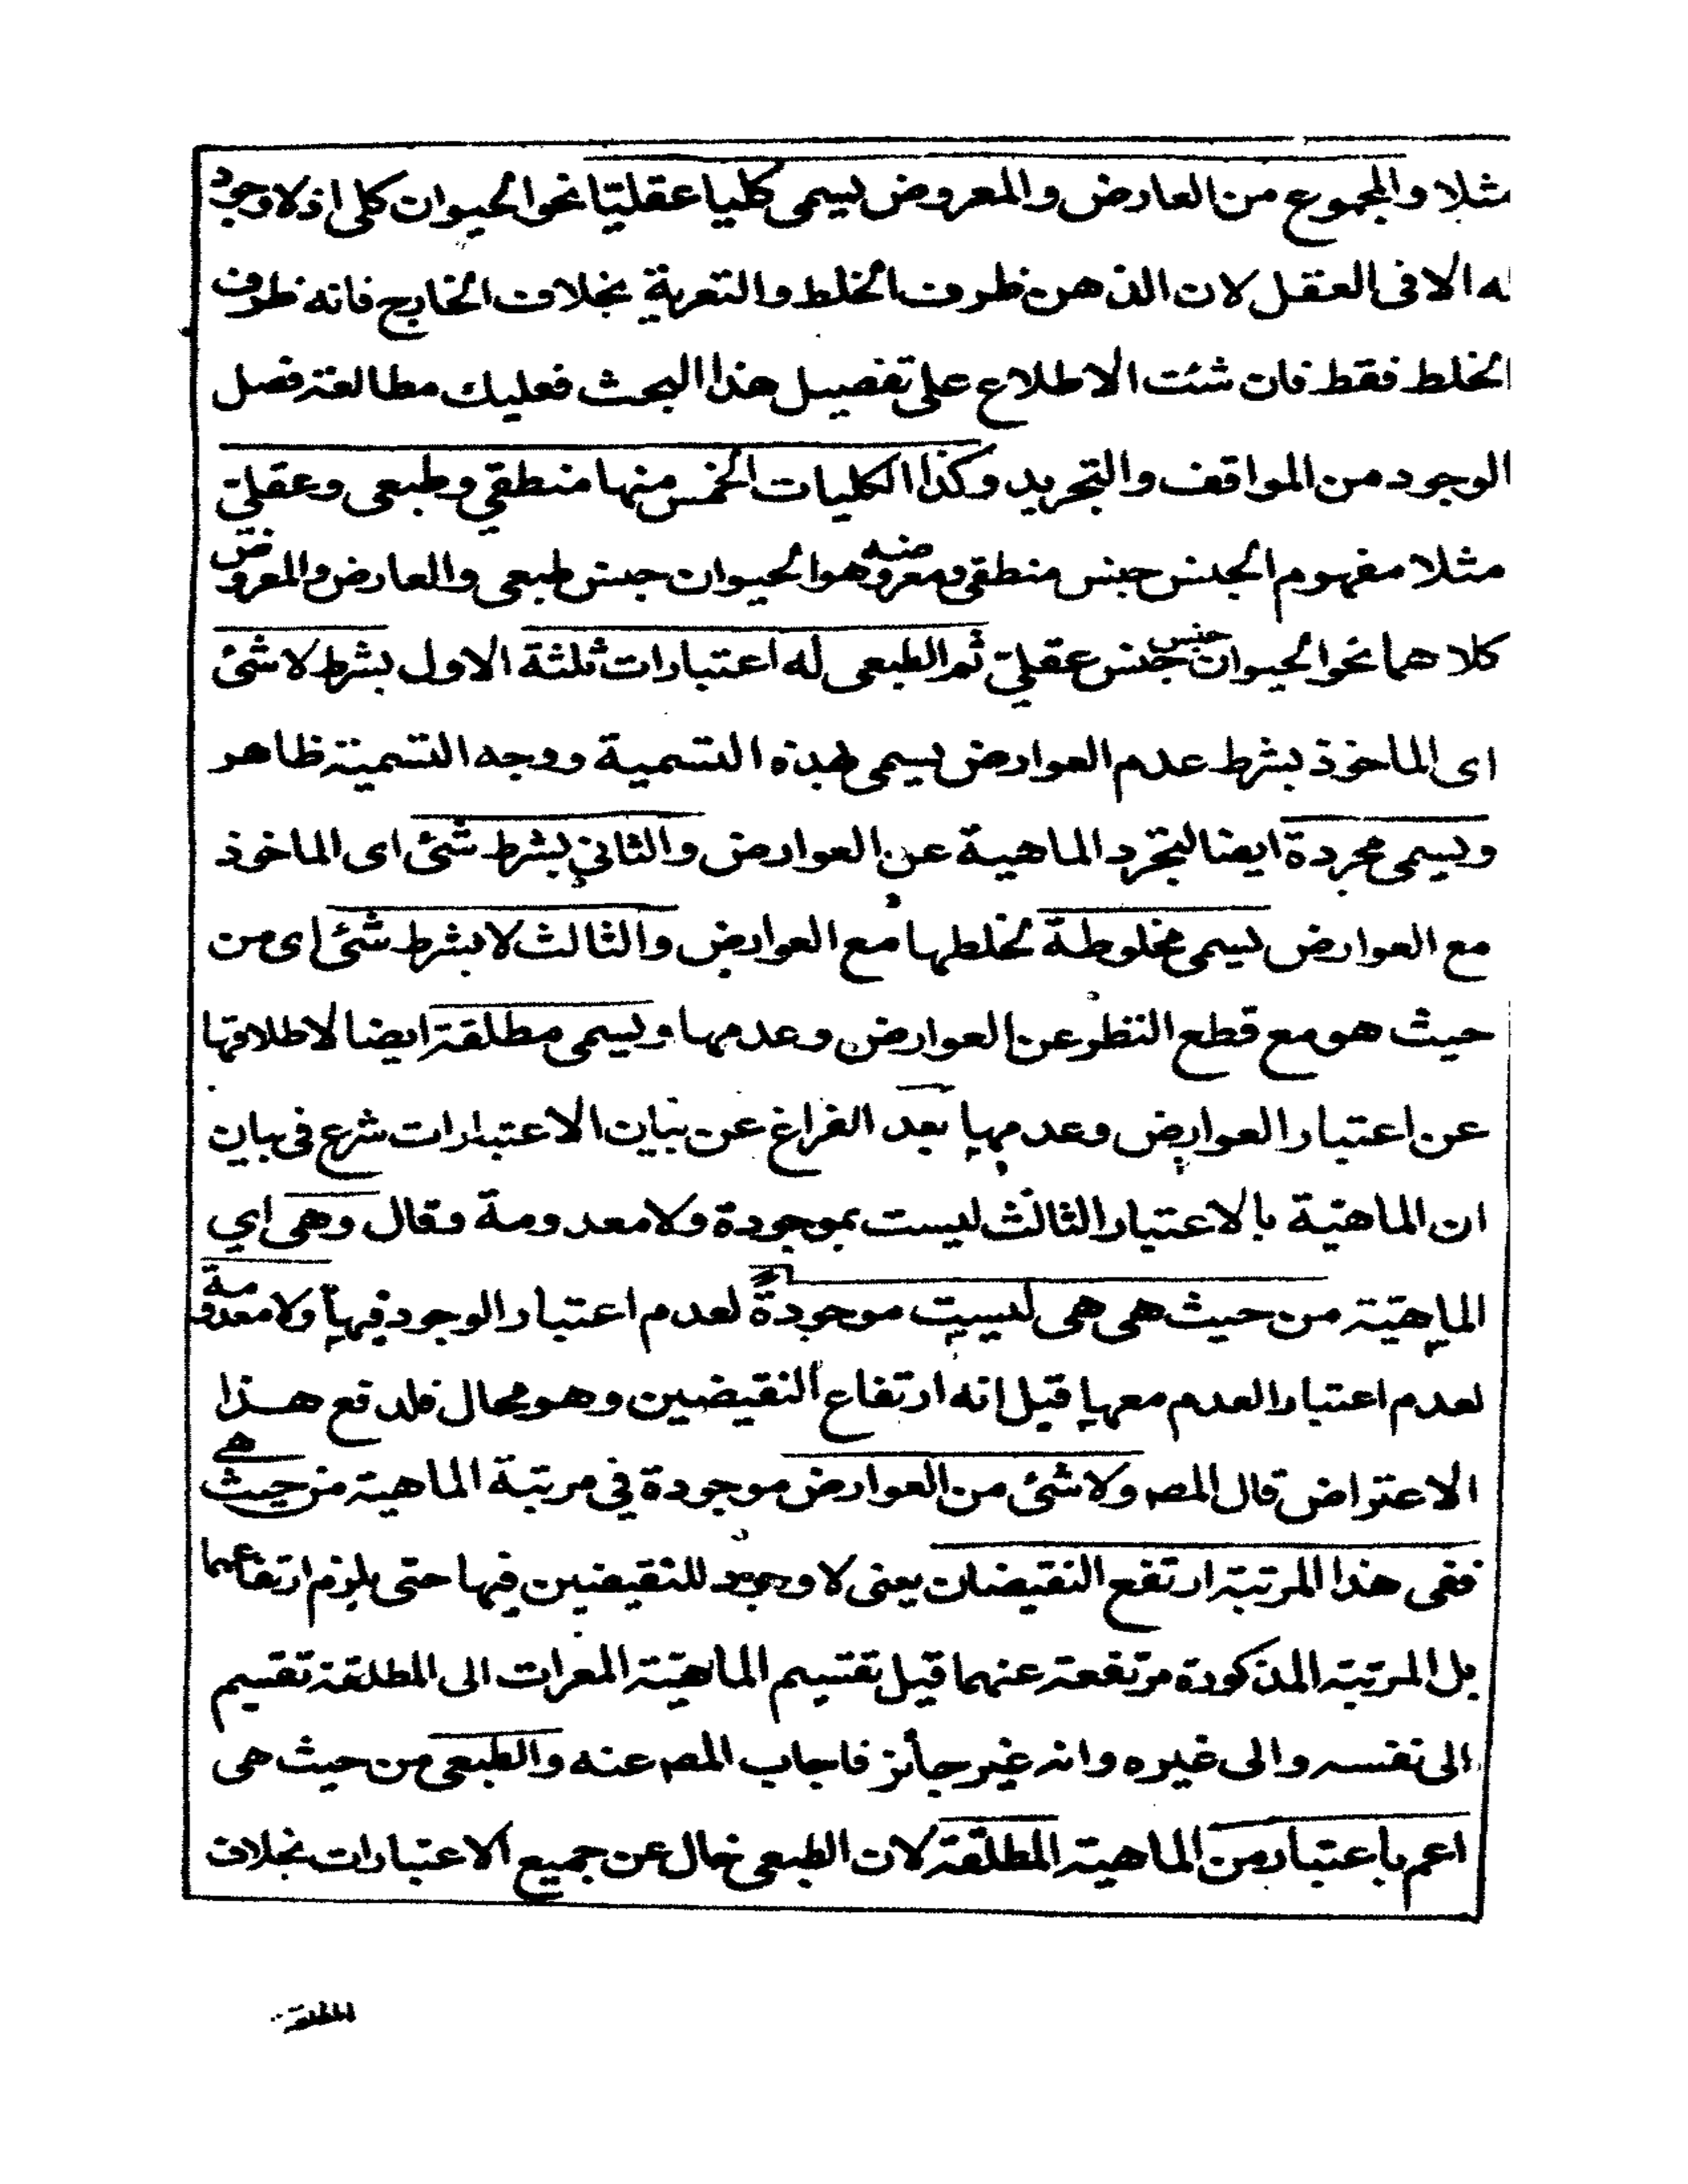 مثلا والمجموع من العارض والمعروض يسمى كليا عقليّا نحو الحيوان كلى اذ لا وجود
له الا فى العقل لان الذهن ظرف الخلط والتعرية بخلاف الخارج فانه ظرف
الخلط فقط فان شئت الاطلاع على تفصيل هذا البحث فعليك مطالعة فصل
الوجود من المواقف والتجريد وكذا الكليات الخمس منها منطقي وطبعى وعقلىّ
مثلا مفهوم الجنس جنس منطقى ومعروضه هو الحيوان جنس طبعى والعارض والمعروض
كلاهما نحو الحيوان جنس جنس عقلىّ ثم الطبعى له اعتبارات ثلثة الاول بشرط لا شئ
اى الماخوذ بشرط عدم العوارض يسمى بهذه التسمية ووجه التسمية ظاهر
ويسمى مجردة ايضا لتجرد الماهية عن العوارض والثاني بشرط شئ اى الماخوذ
مع العوارض يسمى مخلوطة لخلطها مع العوارض والثالث لا بشرط شئ اى من
حيث هو مع قطع النظر عن العوارض وعدمها ويسمى مطلقة ايضا لاطلاقها
عن اعتبار العوارض وعدمها بعد الفراغ عن بيان الاعتبارات شرع فى بيان
ان الماهيّة بالاعتبار الثالث ليست بموجودة ولا معدومة وقال وهى اي
الماهيّة من حيث هى هى ليست موجودة لعدم اعتبار الوجود فيها ولا معدومة
لعدم اعتبار العدم معها قيل انه ارتفاع النقيضين وهو محال فلدفع هذا
الاعتراض قال المصـ ولا شئ من العوارض موجودة في مرتبة الماهية من حيث هى
ففى هذا المرتبة ارتفع النقيضان يعنى لا وجود للنقيضين فيها حتى يلزم ارتفاعهما
بل المرتبة المذكورة مرتفعة عنهما قيل تقسيم الماهيّة المعرات الى المطلقة تقسيم
الى نفسه والى غيره وانه غير جائز فاجاب المصـ عنه والطبعى من حيث هى
اعم باعتبار من الماهية المطلقة لان الطبعى خال عن جميع الاعتبارات بخلاف
المطلقة